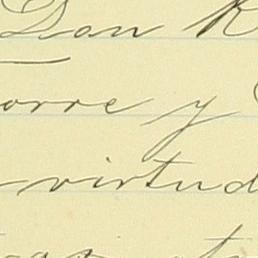 Dan R
orre y
virtud